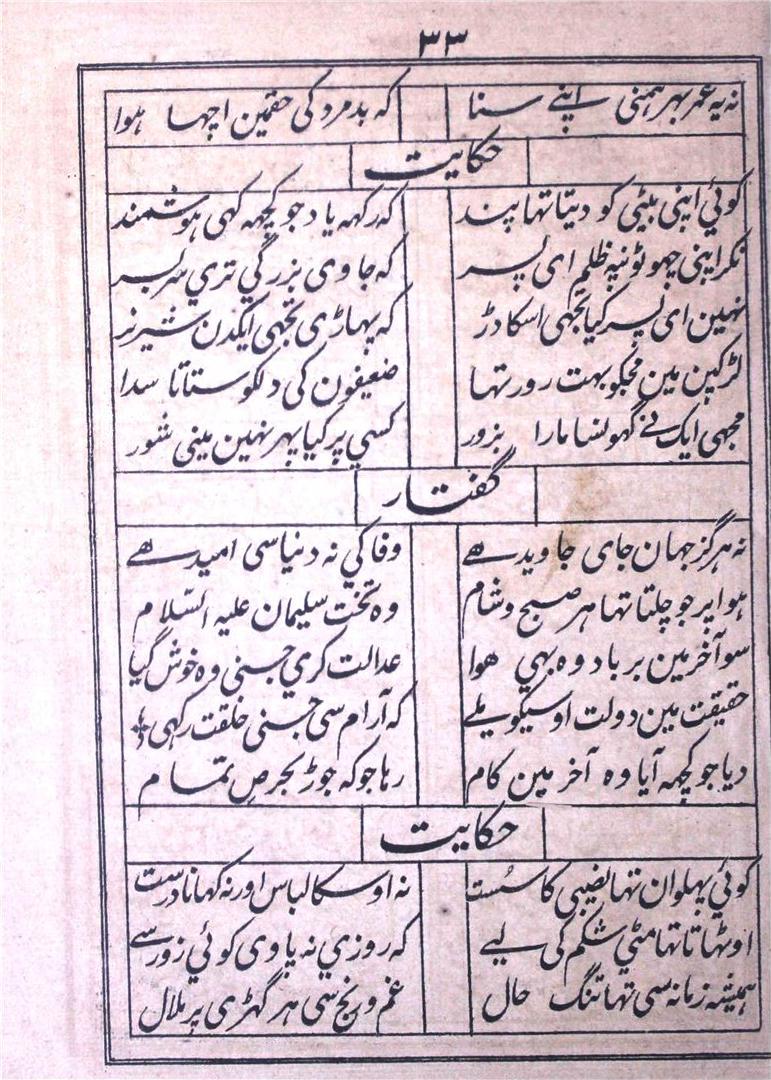 ۳۳
نہ یہ عمر بھر ہمنی اپنے سنا کہ بد مرد کی حقمین اچھا ہوا
حکایت
کوئي اپنی بیٹی کو دیتا تہا پند کہ رکہہ یاد جو کچھہ کہی ہوشمند
نکر اپنی چھوٹونپہ ظلم ای پسر کہ جاوی بزرگي تری سر بسر
نہین ای پسر کیا تجہی اسکا ڈر کہ پھاڑی تجہی ایکدن شیر نر
لڑکپن مین مجکو بہت زور تہا ضعیفون کی دلکو ستاتا سدا
مجہی ایک نے گہونسا مارا بزور کسي پر کیا پہر نہین مینی شور
گفتار
نہ ہرگز جہان جای جاوید ہے وفا کي نہ دنیا سی امید ہے
ہوا پر جو چلتا تہا ہر صبح و شام وہ تخت سلیمان علیہ السّلام
سو آخر مین برباد وہ بہی ہوا عدالت کري جسنی وہ خوش گیا
حقیقت مین دولت اوسیکو ملے کہ آرام سی جسنی خلقت رکہی
دیا جو کچھہ آیا وہ آخر مین کام رہا جو کہ جوڑ بحرص تمام
حکایت
کوئي پہلوان تہا نصیبی کا سُست نہ اوسکا لباس اور نہ کہانا درست
اوٹہاتا تہا مٹي شکم کی لیے کہ روزي نہ پاوی کوئي زور سے
ہمیشہ زمانہ سی تہا تنگ حال غم و رنج سی ہر گہڑی پر ملال